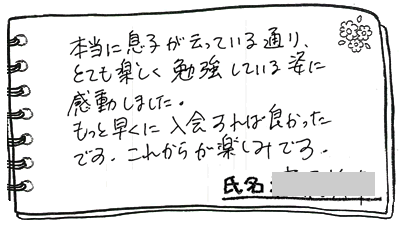 本当に息子が云っている通り、
とても楽しく勉強している姿に
感動しました。
もっと早くに入会すれば良かった
です。これからが楽しみです。
氏名: